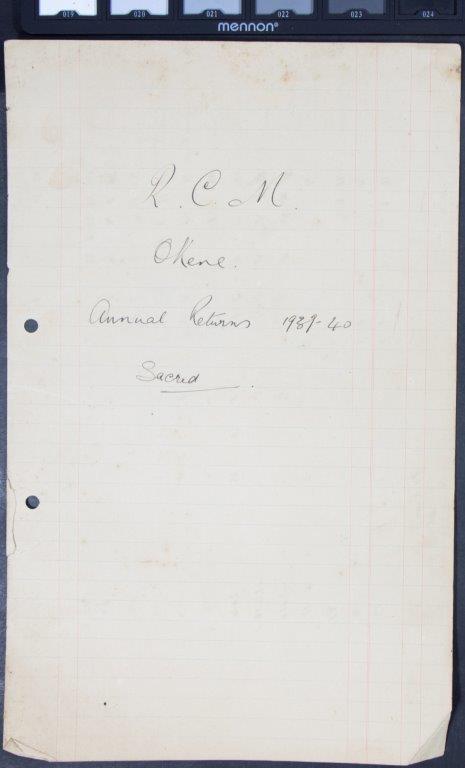 019 020 021 022 023 024
mennon®
R. C. M.
Okene.
Annual Returns 1939-40
Sacred